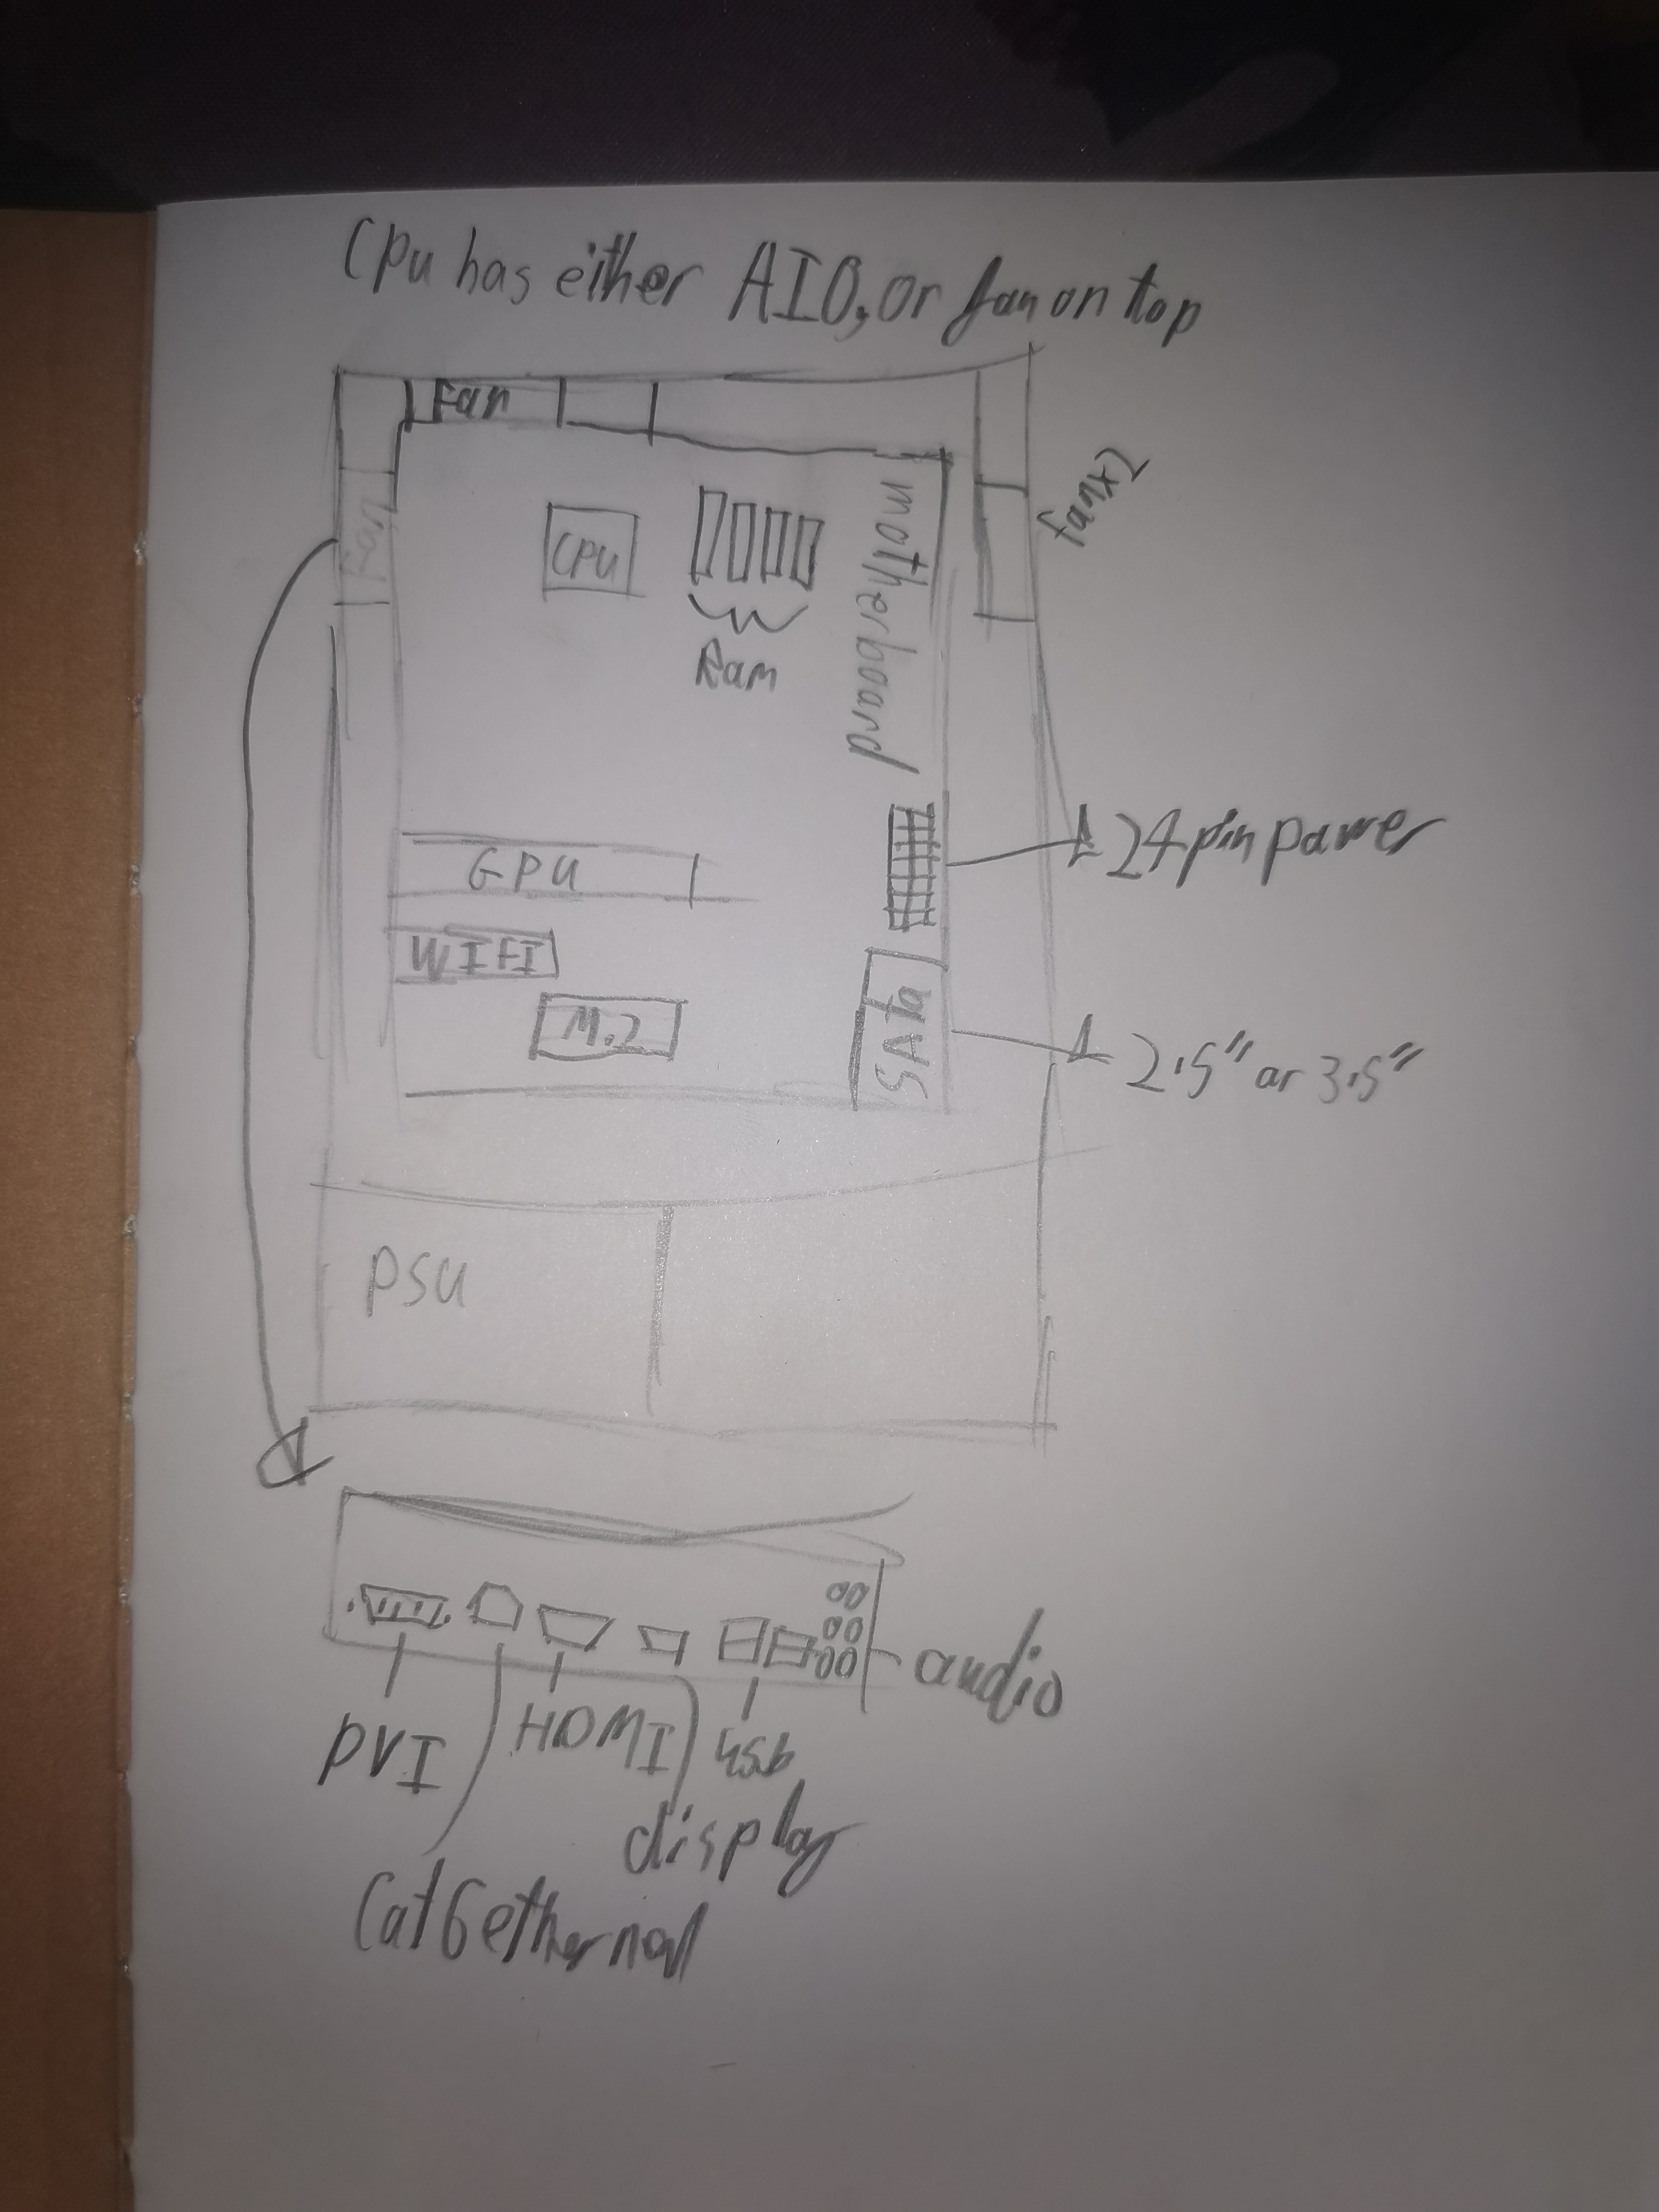 Cpu has either AIO, or fan on top
Fan
Fan
fanx2
CPU
Ram
motherboard
24 pin power
GPU
WIFI
M.2
SAta
2.5" or 3.5"
PSU
audio
DVI
HDMI
usb
display
Cat6 ethernet